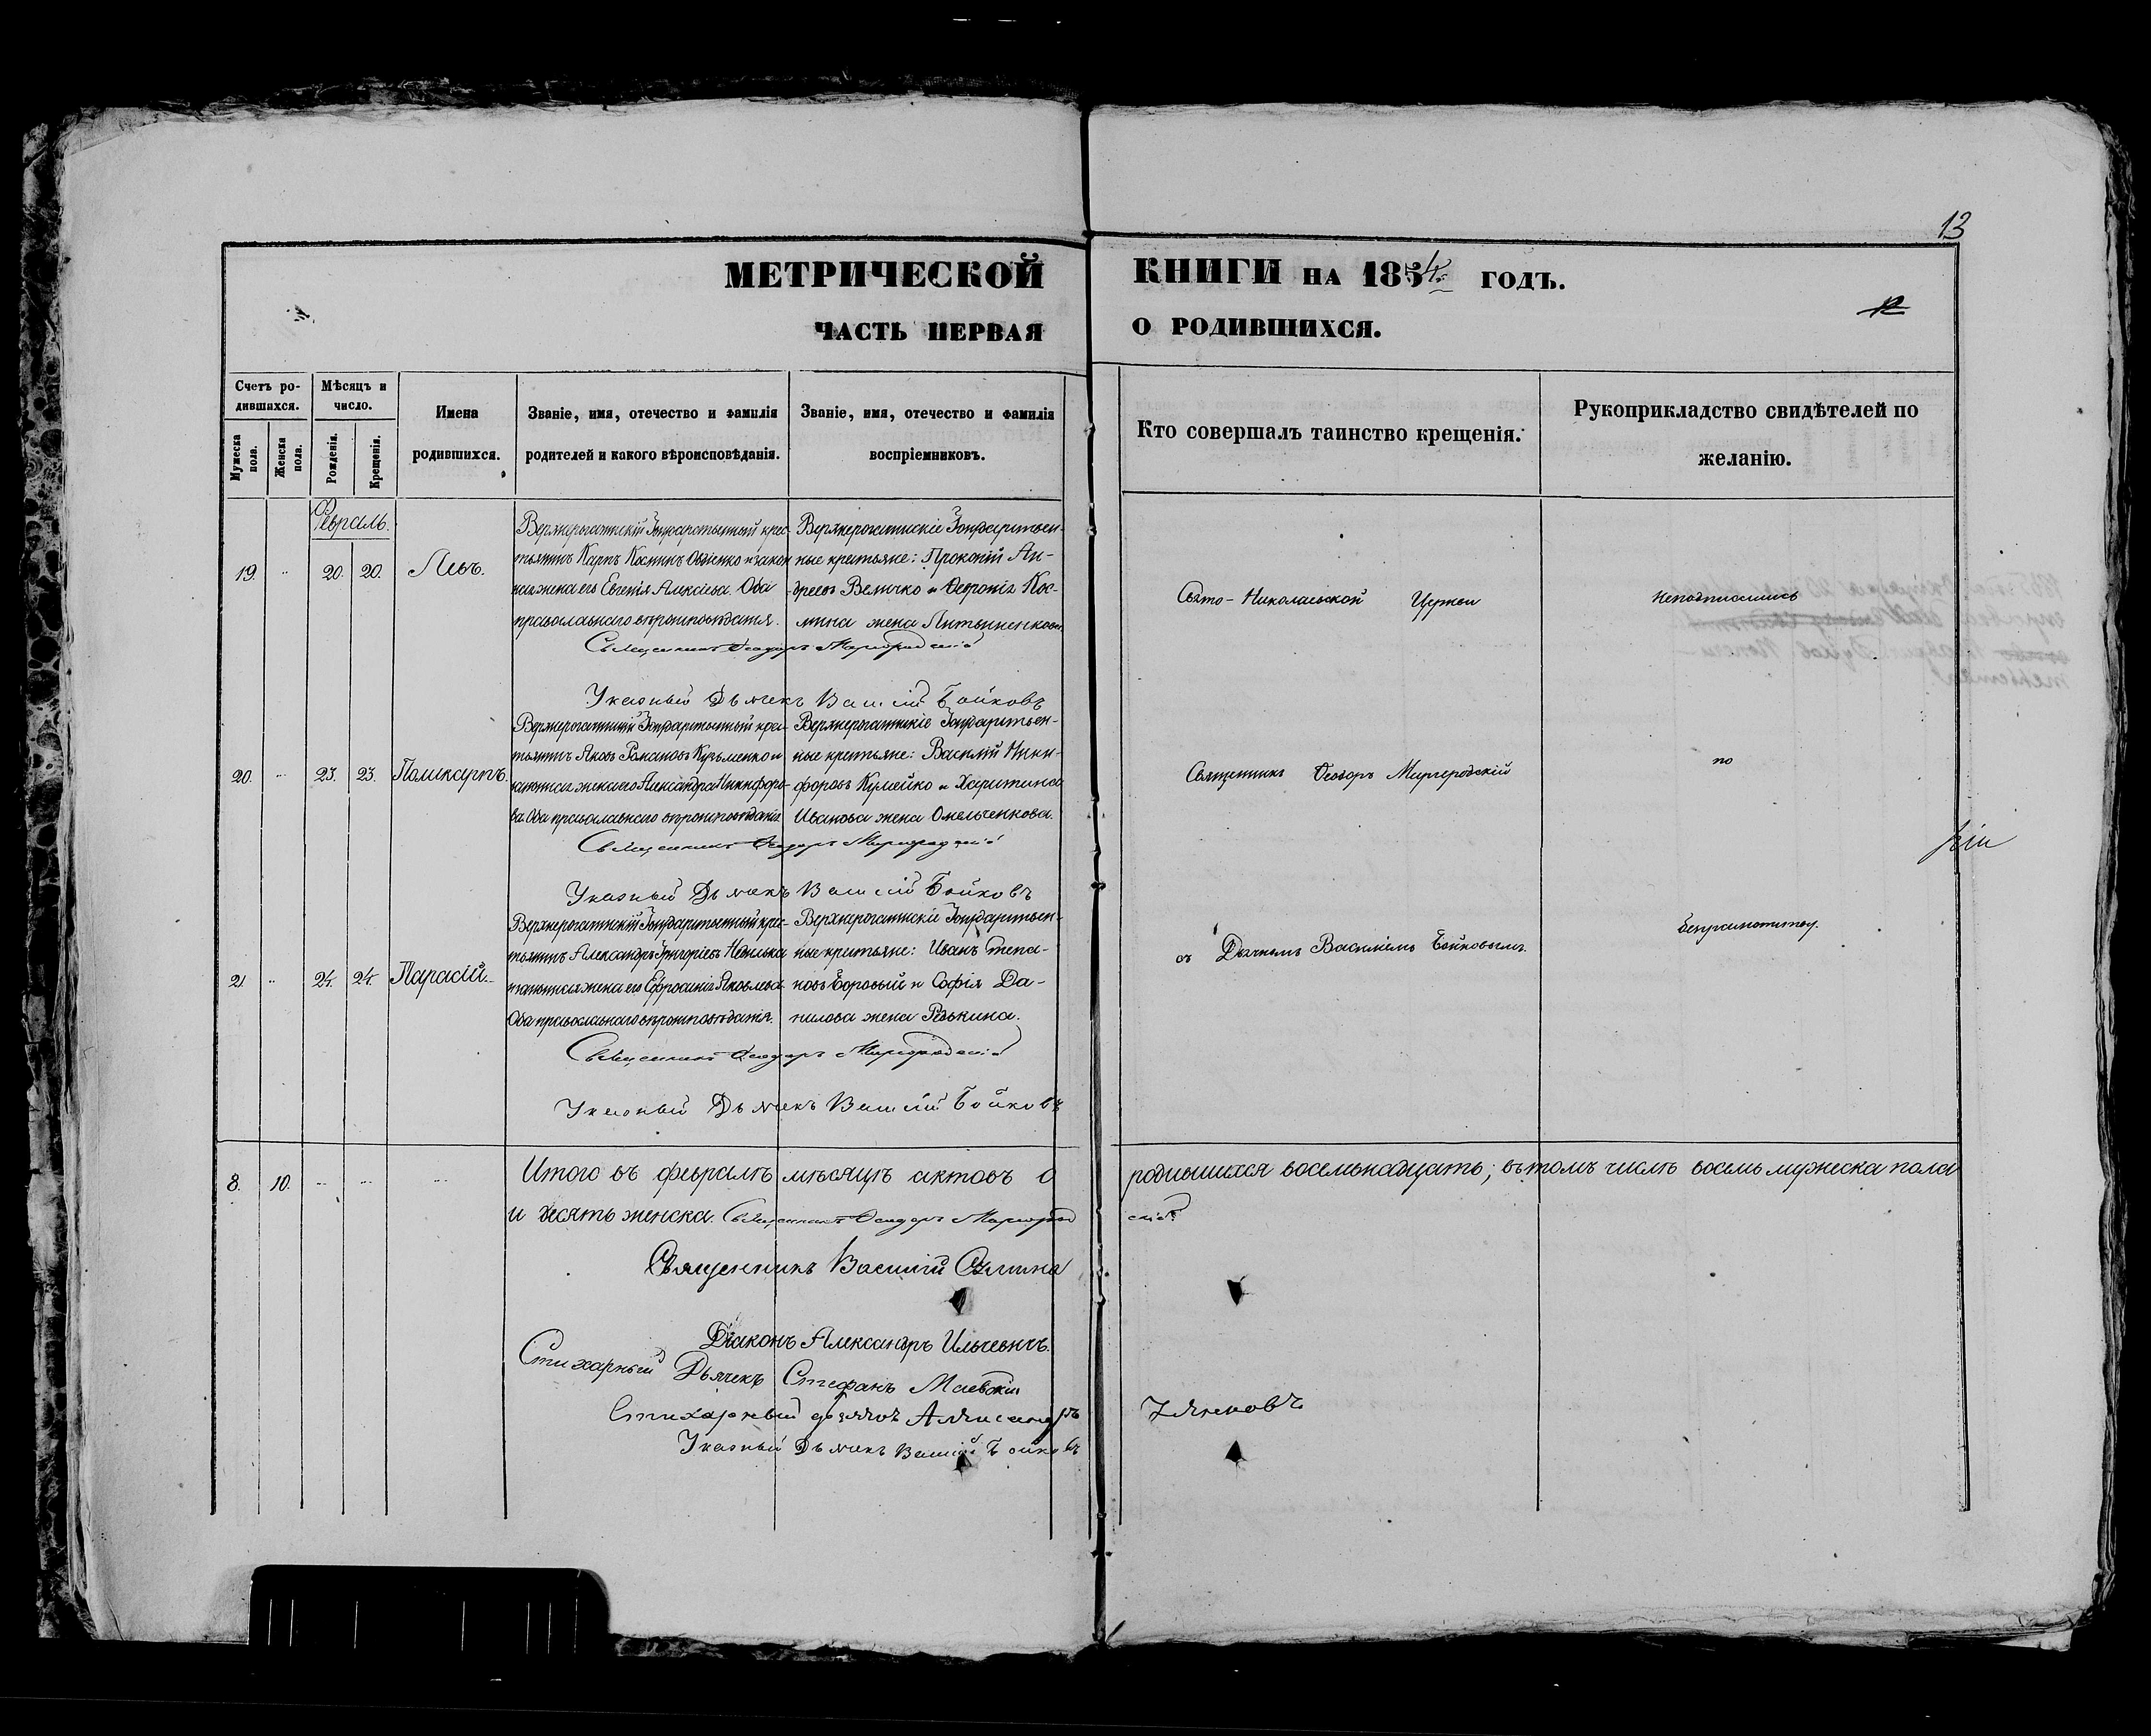 13
МЕТРИЧЕСКОЙ КНИГИ НА 1854 ГОДЪ.
12
ЧАСТЬ ПЕРВАЯ О РОДИВШИХСЯ.
Счетъ ро-
дившихся.
Мужеска пола.
Женска пола.
Мѣсяцъ и
число.
Рожденія.
Крещенія.
Имена
родившихся.
Званіе, имя, отечество и фамилія
родителей и какого вѣроисповѣданія.
Званіе, имя, отечество и фамилія
воспріемниковъ.
Кто совершалъ таинство крещенія.
Рукоприкладство свидѣтелей по
желанію.
Февраль.
19. 20. 20. Левъ.
Верхнерогачикскій Государственный крес-
тьянинъ Карпъ Косминъ и закон
ная жена его Евгенія Алексіева. Оба
православнаго вѣроисповѣданія.
Верхнерогачикскіе Государствен-
ные крестьяне: Прокопій Ан-
дреевъ Величко и Февронія Кос-
мина жена Литвиненкова.
Священникъ Ѳеодоръ Миргородскій
Указный Дьячекъ Василій Бойковъ
20. 23. 23. Поликарпъ.
Верхнерогачикскій Государственный крес-
тьянинъ Яковъ Романовъ Кузьменко и
законная жена его Александра Никифоро-
ва. Оба православнаго вѣроисповѣданія.
Верхнерогачикскіе Государствен-
ные крестьяне: Василій Ники-
форовъ Кулейко и Харитина
Иванова жена Омельченкова.
Священникъ Ѳеодоръ Миргородскій
Указный Дьячекъ Василій Бойковъ
21 24. 24. Тарасій.
Верхнерогачикскій Государственный крес-
тьянинъ Александръ Григоріевъ
законная жена его Ефросинія Яковлева
Оба православнаго вѣроисповѣданія.
Верхнерогачикскіе Государствен-
ные крестьяне: Иванъ Степа-
новъ Боровый и Софія Да-
нилова жена Редькина.
Священникъ Ѳеодоръ Миргородскій
Указный Дьячекъ Василій Бойковъ
Свято-Николаевской Церкви
Священникъ Ѳеодоръ Миргородскій
съ Дьячкомъ Василіемъ Бойковымъ.
Неподписались
по
безграмотству.
8. 10. Итого въ февралѣ мѣсяцѣ актовъ о родившихся восемьнадцать; въ томъ числѣ восемь мужеска пола
и десять женска. Священникъ Ѳеодоръ Миргородскій
Священникъ Василій
Діаконъ Александръ Ильчевичъ.
Стихарный Дьячекъ Стефанъ Маевскій
Стихарный дьячокъ Александръ
Указный Дьячекъ Василій Бойковъ